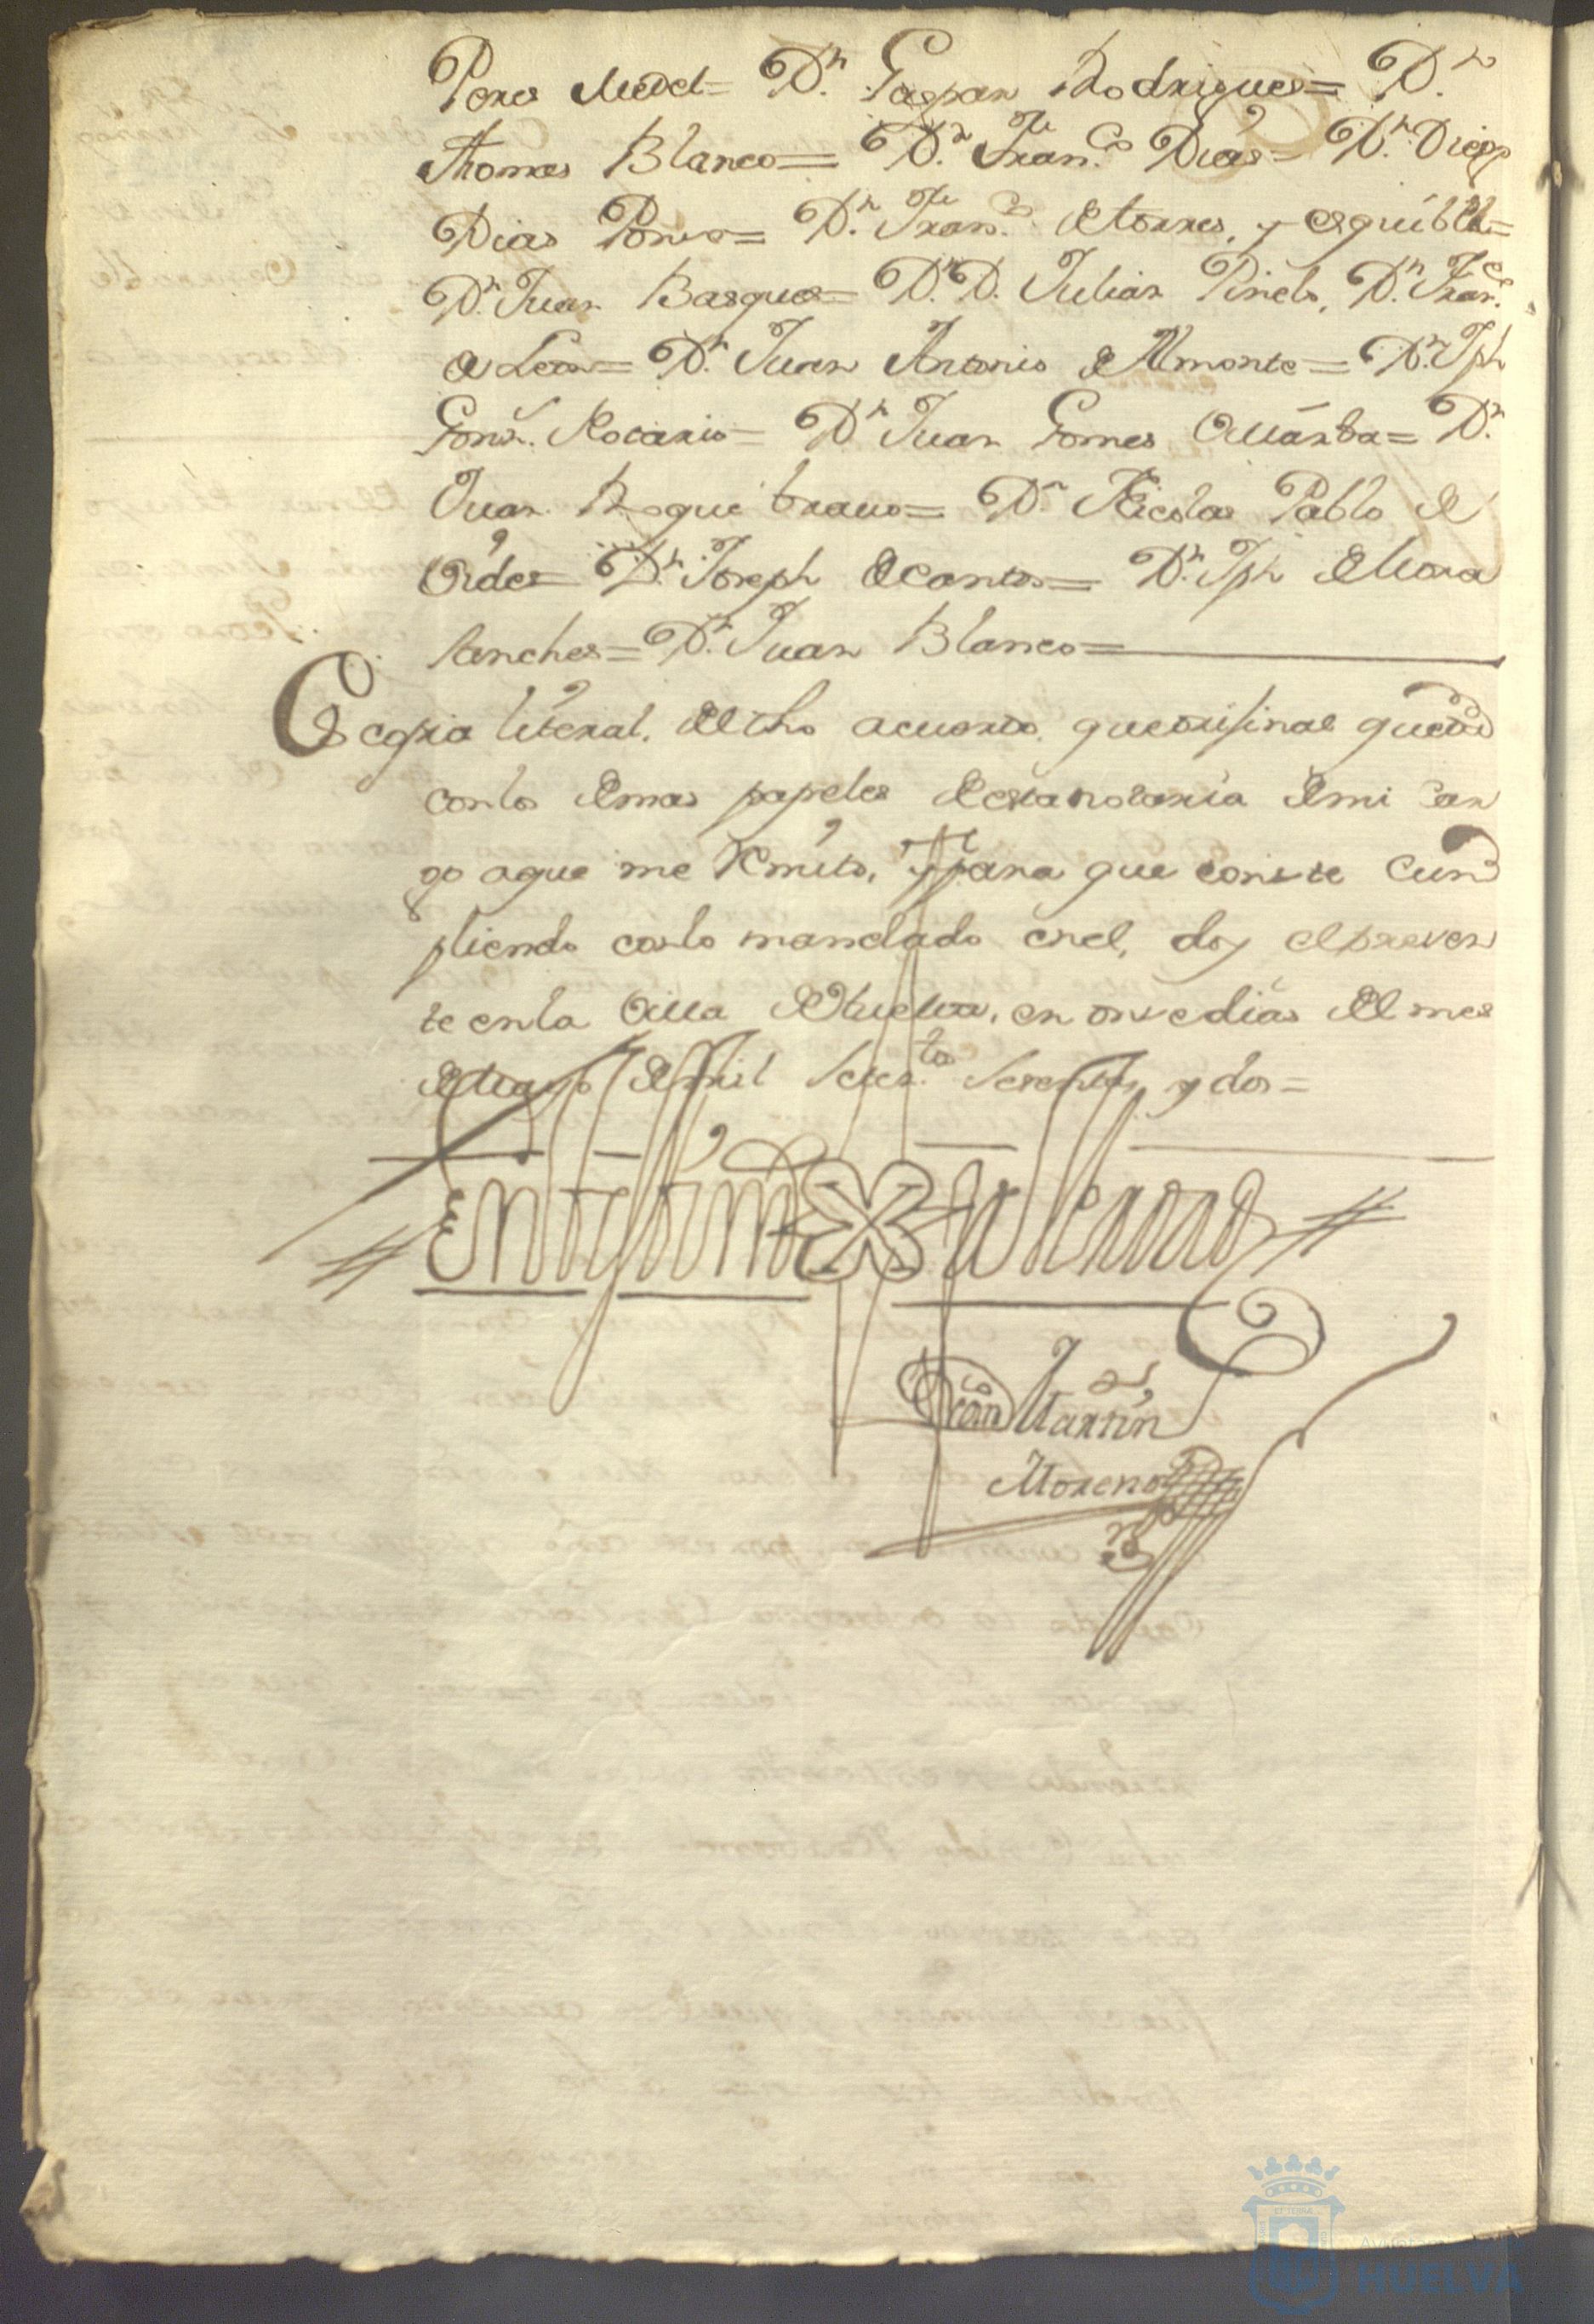 Peres Medel= Dn. Gaspar Rodrigues= Dn.
Thomas Blanco= Dn. Franco. Dias= Dn. Diego
Dias Ponse= Dn. Franco. de torres, y esquibel=
Dn. Juan Basques= Dn. D. Julian Pinelo, Dn. Franco.
de Leon= Dn. Juan Antonio de Almonte= Dn. Jph
Gonz. Notario= Dn. Juan Gomes Villarba= Dn.
Juan Roque brauo= Dn. Nicolas Pablo de
Vides= Dn. Joseph de cantos= Dn. Jph de Mora
sanches= Dn. Juan Blanco=
Es copia literal. del dho acuerdo. que orijinal queda
con los demas papeles de esta notaria de mi car
go a que me Remito, y para que conste cum
pliendo con lo mandado en el, doy el presen
te en la Villa de Huelva, en onse dias del mes
de Mayo de mil setestos. Setenta y dos=
En testimo de Verdad
Franco Martin
Moreno
HUELVA